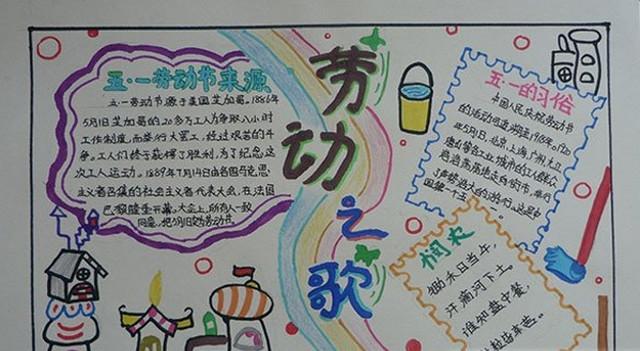 五·一劳动节来源
五·一劳动节源于美国芝加哥。1886年
5月1日芝加哥的20多万工人为争取八小时
工作制度,而举行大罢工,经过艰苦的斗
争。工人们终于获得了胜利,为了纪念这
次工人运动。1889年7月14日由各国马克思
主义者召集的社会主义者代表大会,在法国
巴黎隆重开幕。大会上,所有人一致
同意,把5月1日定为劳动节
劳动之歌
五·一的习俗
中国人民庆祝劳动节
的活动可追溯至1918年。1920
年5月1日,北京,上海,广州,九江
唐山等各工业城市的工人群众
浩浩荡荡地走向街市,举行
了声势浩大的游行
国第一个五一。
悯农
锄禾日当午,
汗滴河下土。
谁知盘中餐,
粒粒皆辛苦。